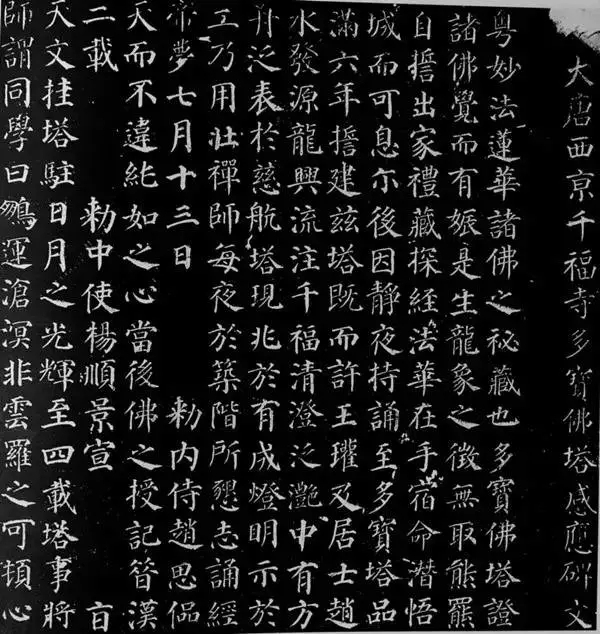 大唐西京千福寺多寶佛塔感應碑文
粤妙法蓮華諸佛之祕藏也多寶佛塔證
諸佛覺而有娠是生龍象之徵無取熊羆
自誓出家禮藏探經法華在手宿命潛悟
城而可息尒後因靜夜持誦至多寶塔品
滿六年誓建兹塔既而許王瓘及居士趙
水發源龍興流注千福清澄泛灧中有方
舟泛表於慈航塔現兆於有成燈明示於
工乃用壯禪師每夜於築階所懇志誦經
帝夢七月十三日 勑内侍趙思偘
天而不違能如之心當後佛之授記昔漢
二載 勑中使楊順景宣 旨
天文挂塔駐日月之光輝至四載塔事將
師謂同學曰鵬運滄溟非雲羅之可頓心